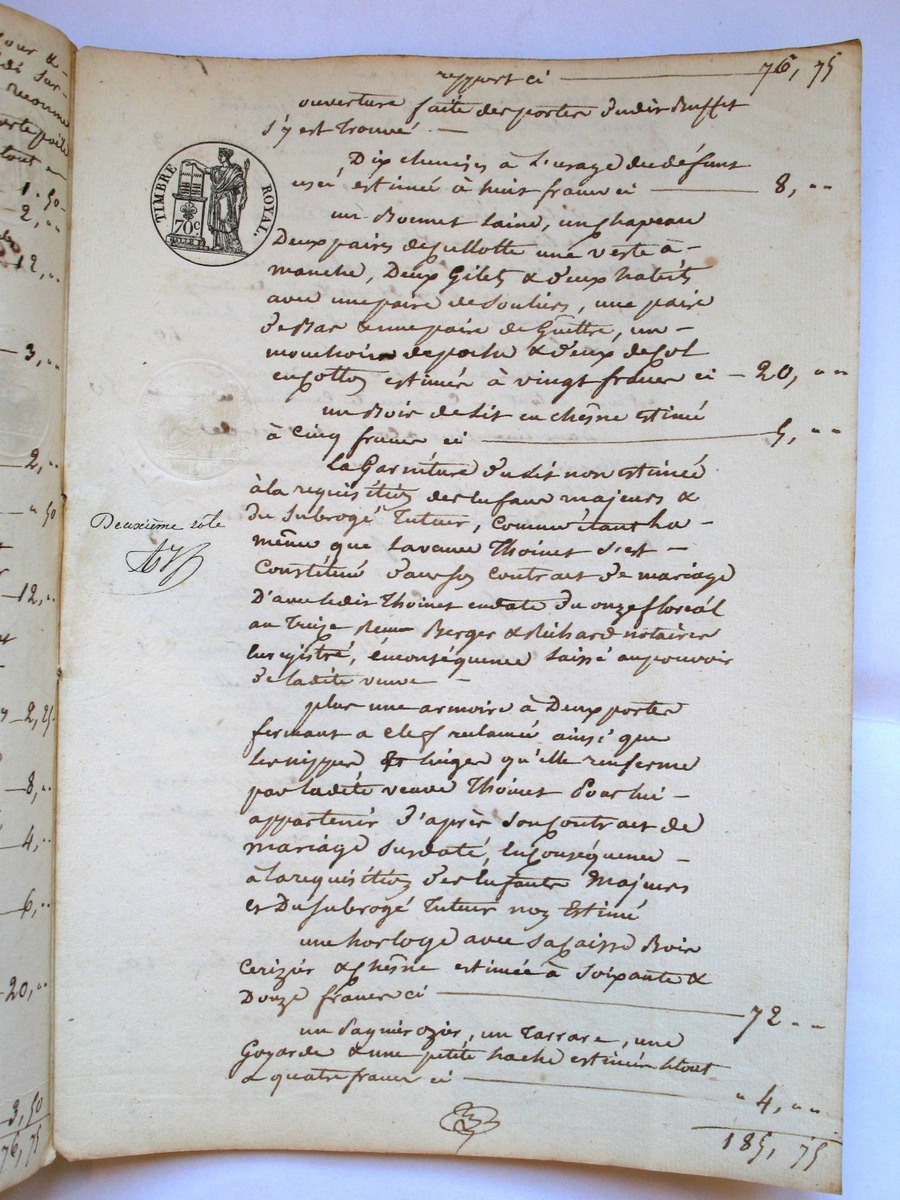 report ci — 76, 75
ouverture faite des portes dudit Buffet
s'y est trouvé. —
Dix chemises à l'usage du défunt
usé estimée à huit franc ci — 8, ""
TIMBRE ROYAL.
70c
un Bonnet laine, un chapeau
Deux paires de cullotte une veste à-
manche, Deux Gilets & deux habits
avec une paire de Souliers, une paire
de Bas & une paire de Guêttre, un -
mouchoir de poche & deux de Col
en cotton estimés à vingt francs ci — 20, ""
un Bois de lit en chesne estimé
à cinq francs ci — 5, ""
La Garniture du lit non estimée
à la requisition des Enfans majeurs &
du Subrogé Tuteur, comme étant la -
même que la veuve Thoinet s'est -
Constitué dans son contrat de mariage
D'avec ledit Thoinet en date du onze floréal
an Treize Reçu Berger & Richard notaires
Enregistré, en conséquence laissé au pouvoir
de ladite veuve —
Deuxième rôle
plus une armoire à Deux portes
fermant a clef reclamée ainsi que
les nippes & linges qu'elle renferme
par ladite veuve Thoinet Pour lui -
appartenir d'après son contrat de
mariage susdaté, en conséquence -
à la requisition des Enfants Majeurs
et Du Subrogé Tuteur non Estimé
une horloge avec sa caisse Bois
cerizier & chesne estimée à Soixante &
Douze francs ci — 72 ""
un Pagnier ozier, un Tarrare, une
Goyarde & une petite hache estimés le tout
a quatre francs ci — " 4, ""
185, 75
our &
reconnu
tout
1. 50
2, ""
12, ""
3, ""
2, ""
" 50
12, ""
2, 25
8, ""
4, ""
6, ""
20, ""
3, 50
76, 75